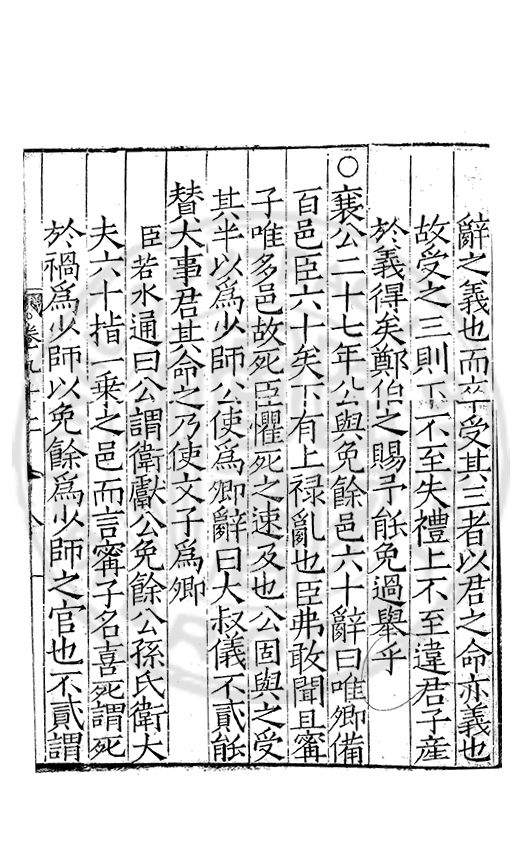 辭之義也而卒受其三者以君之命亦義也
故受之三則下不至失禮上不至違君子產
於義得矣鄭伯之賜予能免過舉乎
○襄公二十七年公與免餘邑六十辭曰唯卿備
百邑臣六十矣下有上祿亂也臣弗敢聞且甯
子唯多邑故死臣懼死之速及也公固與之受
其半以為少師公使為卿辭曰大叔儀不貳能
贊大事君其命之乃使文子為卿
臣若水通曰公謂衛獻公免餘公孫氏衛大
夫六十指一乘之邑而言甯子名喜死謂死
於禍為少師以免餘為少師之官也不貳謂